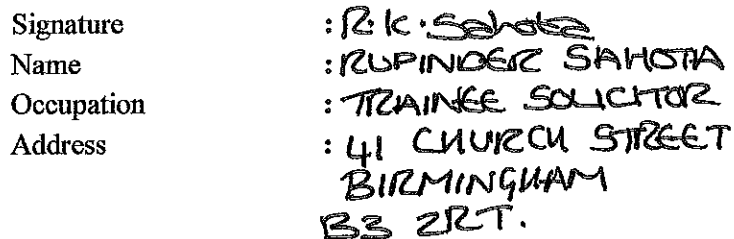 Signature : R.K.Sahota
Name : RUPINDER SAHOTA
Occupation : TRAINEE SOLICITOR
Address : 41 CHURCH STREET
BIRMINGHAM
B3 2RT.